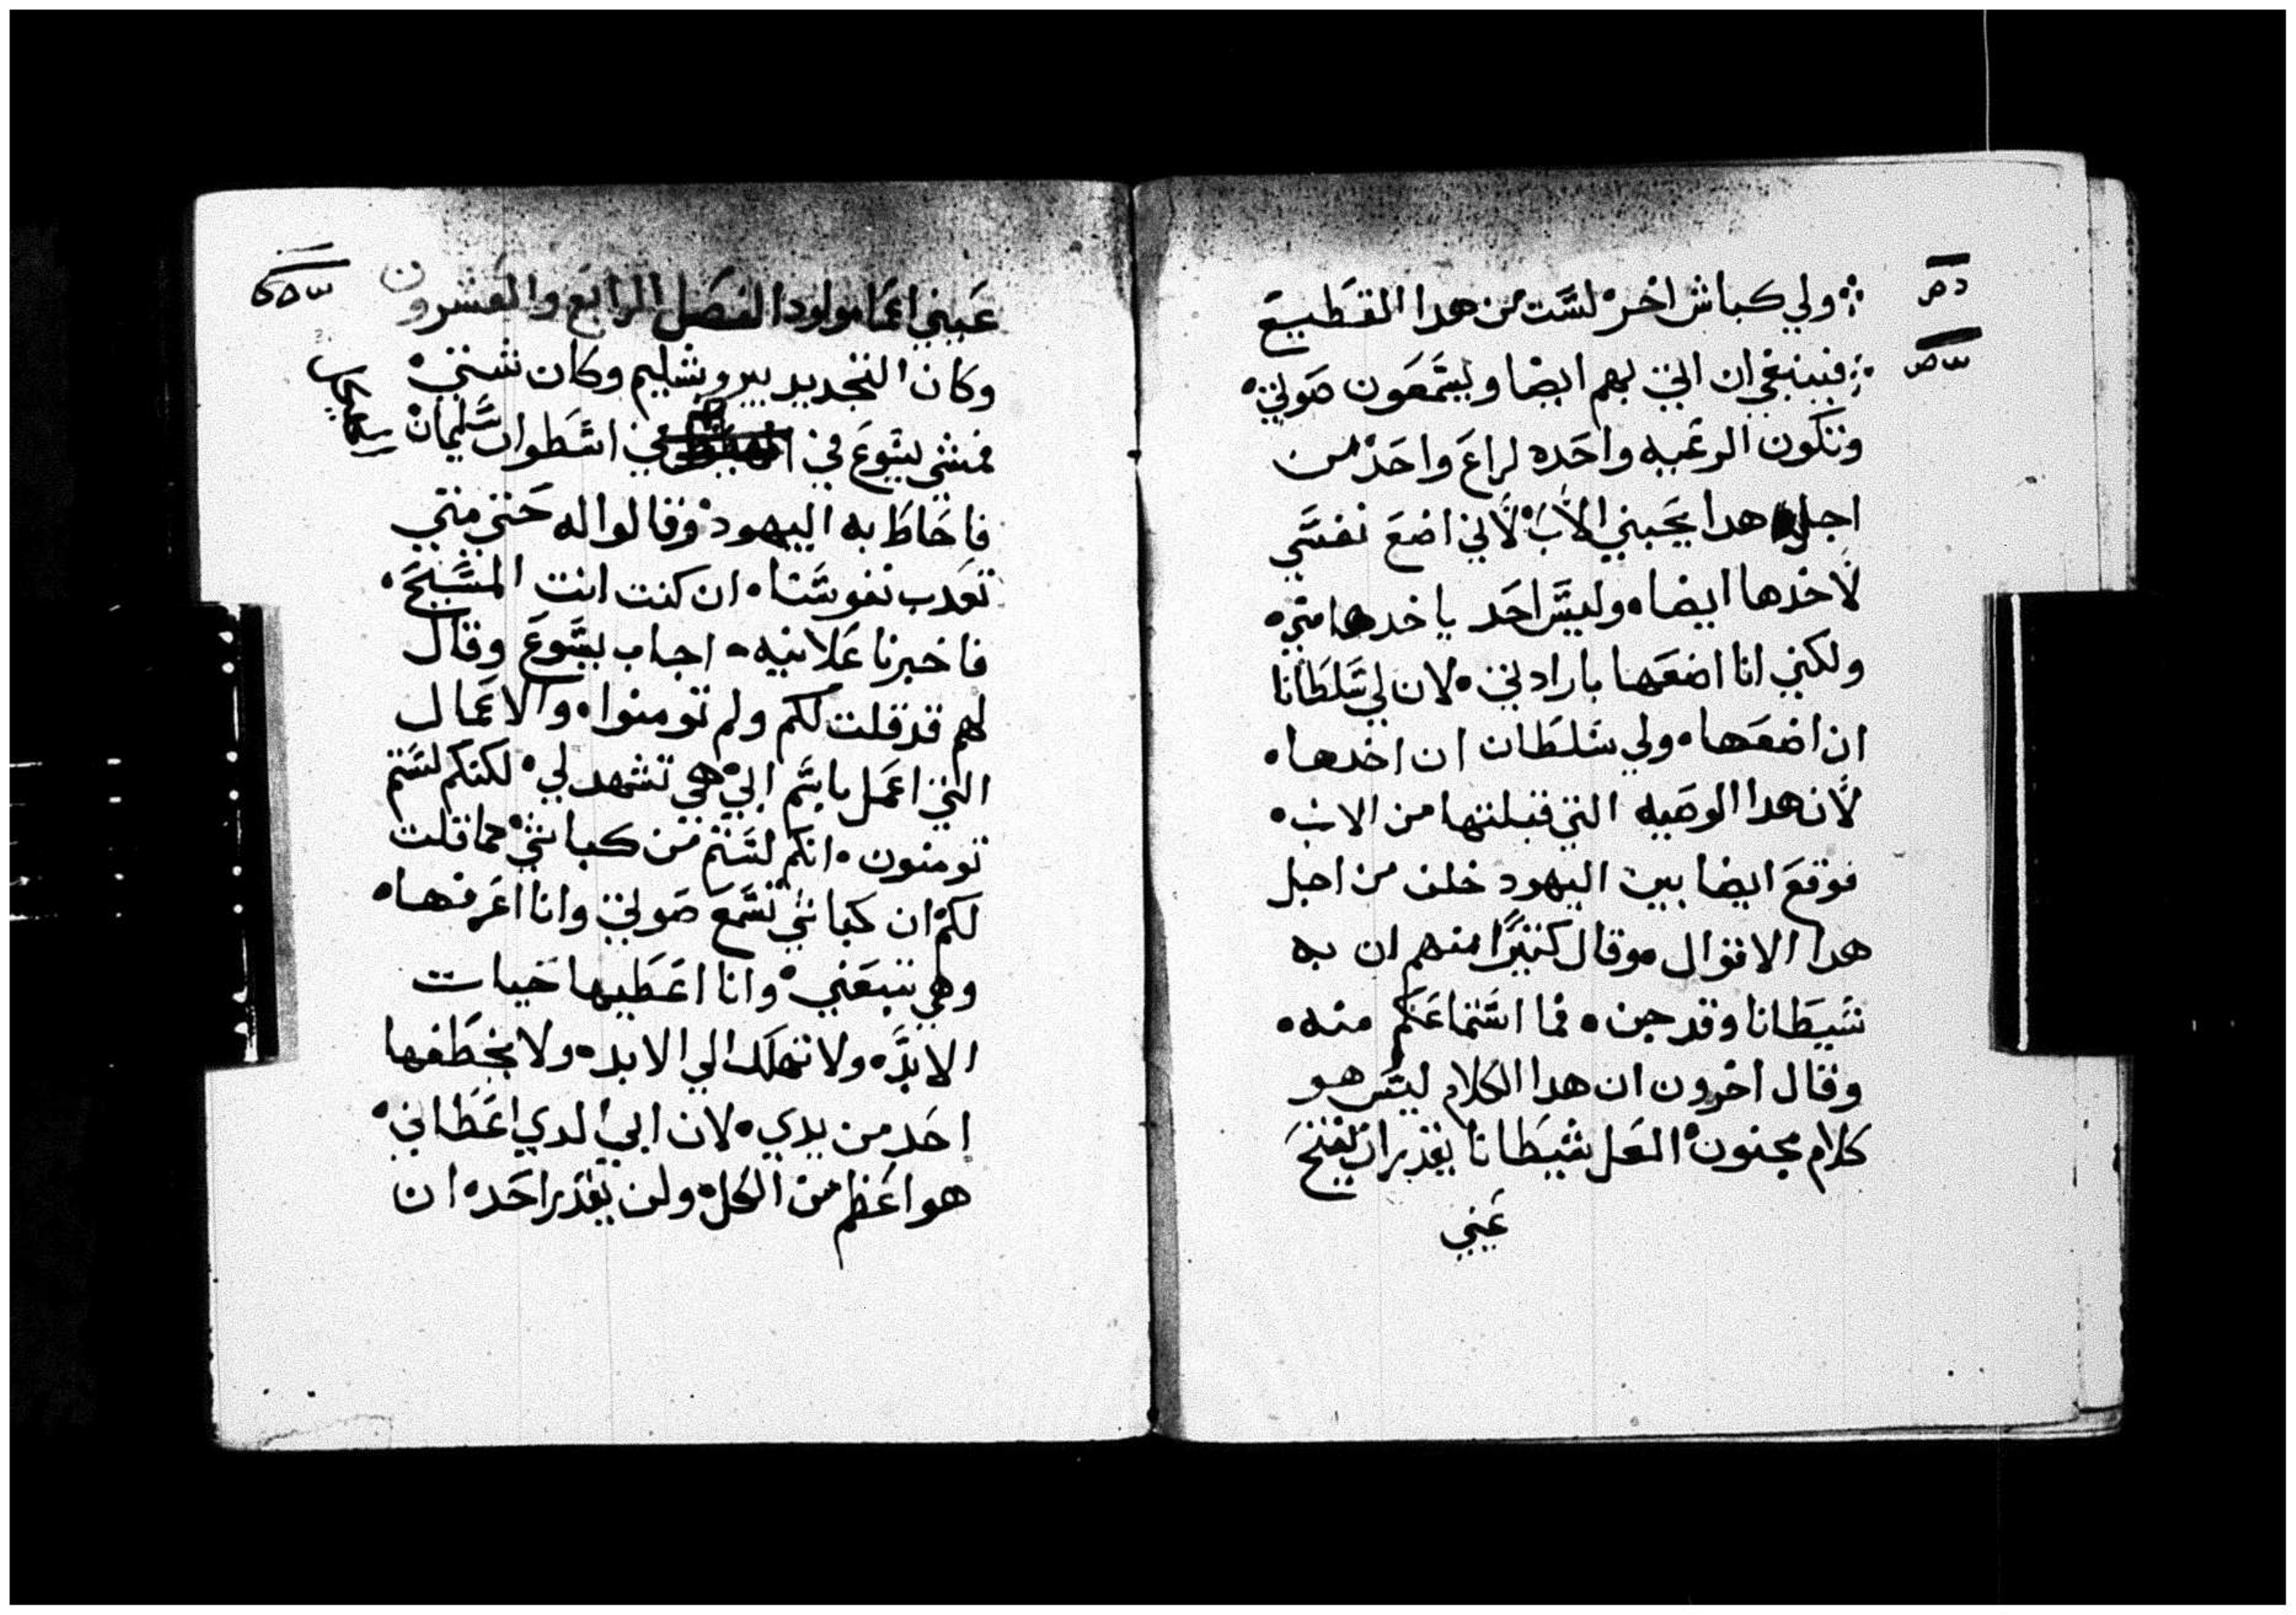 ولي كباش اخر لست من هدا القطيع
فينبغي ان اتي بهم ايضا ويسمعون صوتي
وتكون الرعيه واحده لراع واحد من
اجل هدا يحبني الاب لاني اضع نفسي
لاخدها ايضا وليس احد ياخدها مني
ولكني انا اضعها بارادتي لان لي سلطانا
ان اضعها ولي سلطان ان اخدها
لان هدا الوصيه التي قبلتها من الاب
فوقع ايضا بين اليهود خلف من اجل
هدا الاقوال وقال كثيرا منهم ان به
شيطانا وقد جن فما استماعكم منه
وقال اخرون ان هدا الكلام ليس هو
كلام مجنون العل شيطانا يقدر ان يفتح
عيني
عيني اعما مولود الفصل الرابع والعشرون
وكان التجديد بيروشليم وكان شتي
فمشي يسوع في في اسطوان سليمان
فاحاط به اليهود وقالوا له حتي متي
تعدب نفوسنا ان كنت انت المسيح
فاخبرنا علانيه اجاب يسوع وقال
لهم قد قلت لكم ولم تومنوا والاعمال
التي اعمل باسم ابي هي تشهد لي لكنكم لستم
تومنون انكم لستم من كباشي كما قلت
لكم ان كباشي تسمع صوتي وانا اعرفها
وهي تتبعني وانا اعطيها حيات
الابد ولا تهلك الي الابد ولا يخطفها
احد من يدي لان ابي الدي اعطاني
هو اعظم من الكل ولن يقدر احد ان